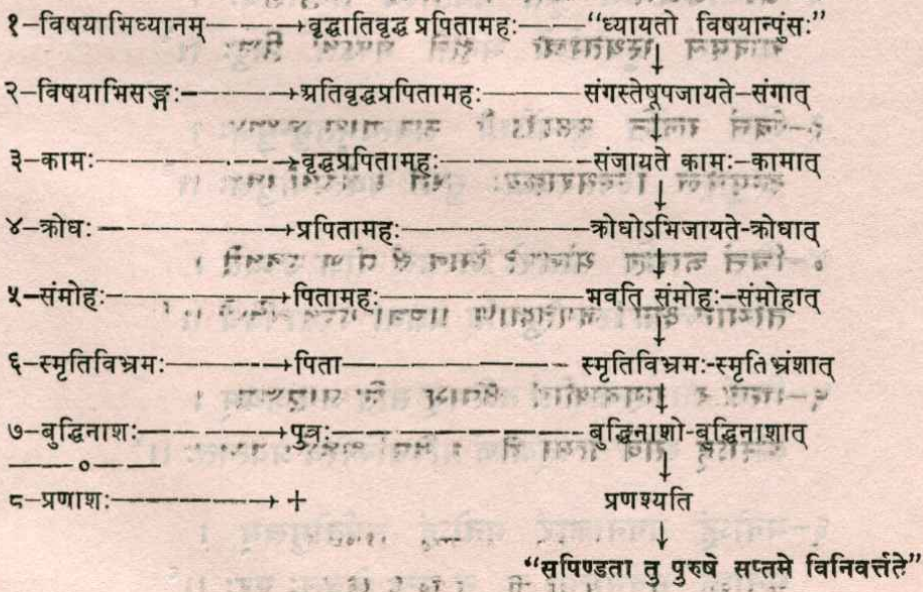 १–विषयाभिध्यानम्————→वृद्धातिवृद्ध प्रपितामहः———“ध्यायतो विषयान्पुंसः”
↓
२–विषयाभिसङ्गः————→अतिवृद्धप्रपितामहः————संगस्तेषूपजायते–संगात्
↓
३–कामः————→वृद्धप्रपितामहः————संजायते कामः–कामात्
↓
४–क्रोधः————→प्रपितामहः————क्रोधोऽभिजायते-क्रोधात्
↓
५–संमोहः————→पितामहः————भवति संमोहः–संमोहात्
↓
६–स्मृतिविभ्रमः————→पिता————स्मृतिविभ्रमः-स्मृतिभ्रंशात्
↓
७–बुद्धिनाशः————→पुत्रः————बुद्धिनाशो-बुद्धिनाशात्
———०——— ↓
८–प्रणाशः————→ + प्रणश्यति
↓
“सपिण्डता तु पुरुषे सप्तमे विनिवर्त्तते”